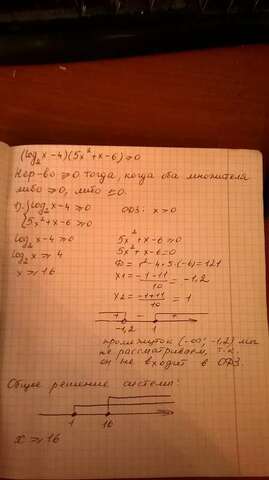 (log₂x-4)(5x²+x-6)⩾0
Нер-во ⩾0 тогда, когда оба множителя
либо ⩾0, либо ⩽0.
1). { log₂x-4⩾0 ОДЗ: x>0
5x²+x-6⩾0
log₂x-4⩾0 5x²+x-6⩾0
log₂x⩾4 5x²+x-6=0
x⩾16 D=1²-4·5·(-6)=121
x1=(-1-11)/10=-1,2
x2=(-1+11)/10=1
+ - +
-1,2 1
промежуток (-∞; -1,2) мы
не рассматриваем, т.к.
он не входит в ОДЗ.
Общее решение системы:
1 16
x⩾16